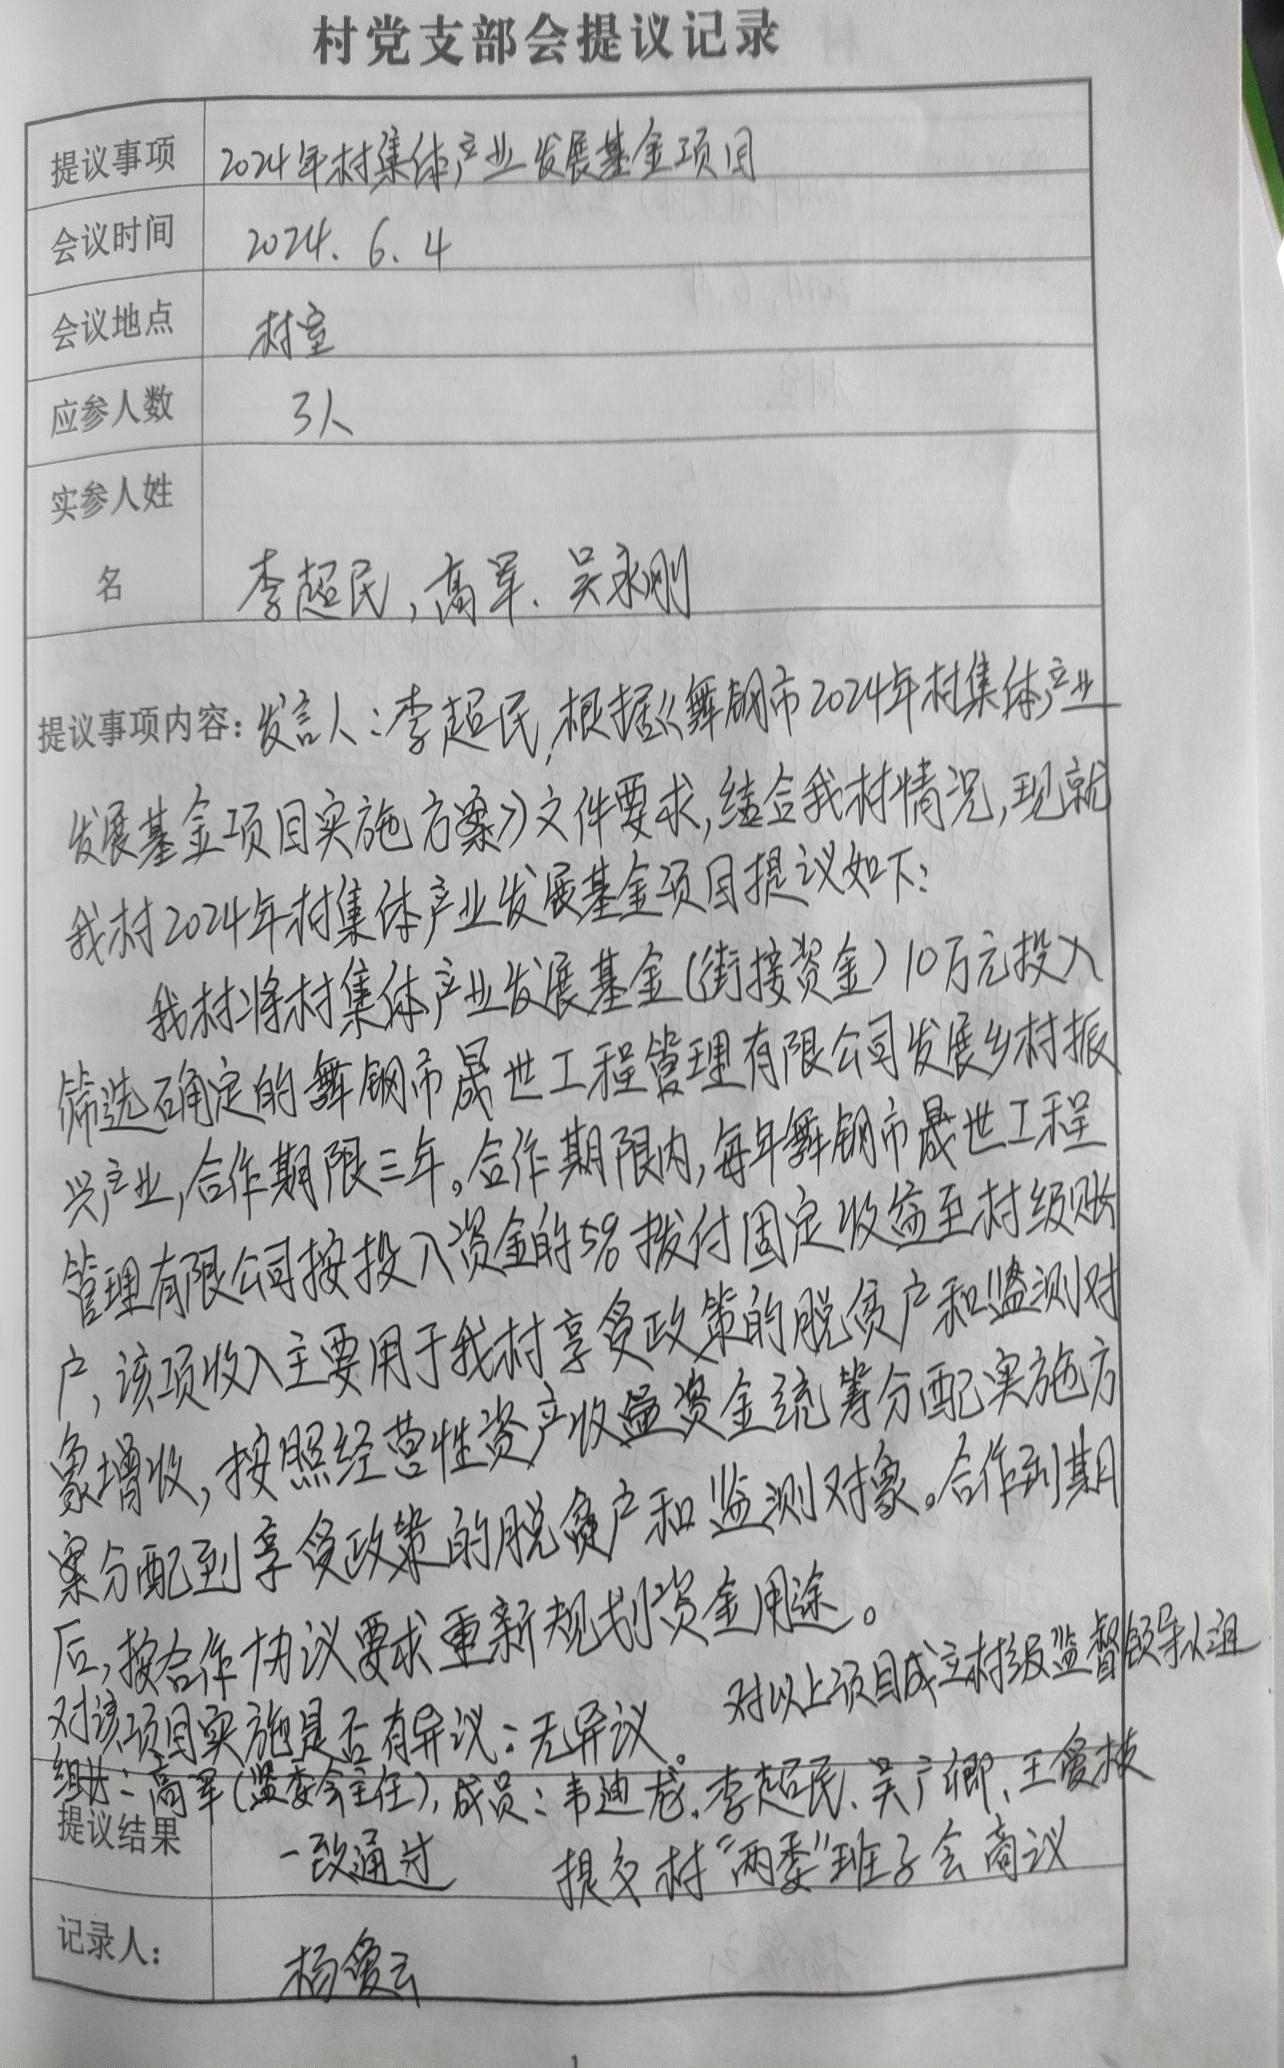 村党支部会提议记录
提议事项 2024年村集体产业发展基金项目
会议时间 2024.6.4
会议地点 村室
应参人数 3人
实参人姓
名 李超民,高军、吴永刚
提议事项内容:发言人:李超民,根据《舞钢市2024年村集体产业
发展基金项目实施方案》文件要求,结合我村情况,现就
我村2024年村集体产业发展基金项目提议如下:
我村将村集体产业发展基金(衔接资金)10万元投入
筛选确定的舞钢市晟世工程管理有限公司发展乡村振
兴产业,合作期限三年。合作期限内,每年舞钢市晟世工程
管理有限公司按投入资金的5%拨付固定收益至村级账
户,该项收入主要用于我村享受政策的脱贫户和监测对
象增收,按照经营性资产收益资金统筹分配实施方
案分配到享受政策的脱贫户和监测对象。合作到期
后,按合作协议要求重新规划资金用途。
对该项目实施是否有异议:无异议。 对以上项目成立村级监督领导小组
组长:高军(监委会主任),成员:韦迪龙、李超民、吴广卿、王爱枝
提议结果 一致通过 提交村“两委”班子会商议
记录人: 杨爱云
1